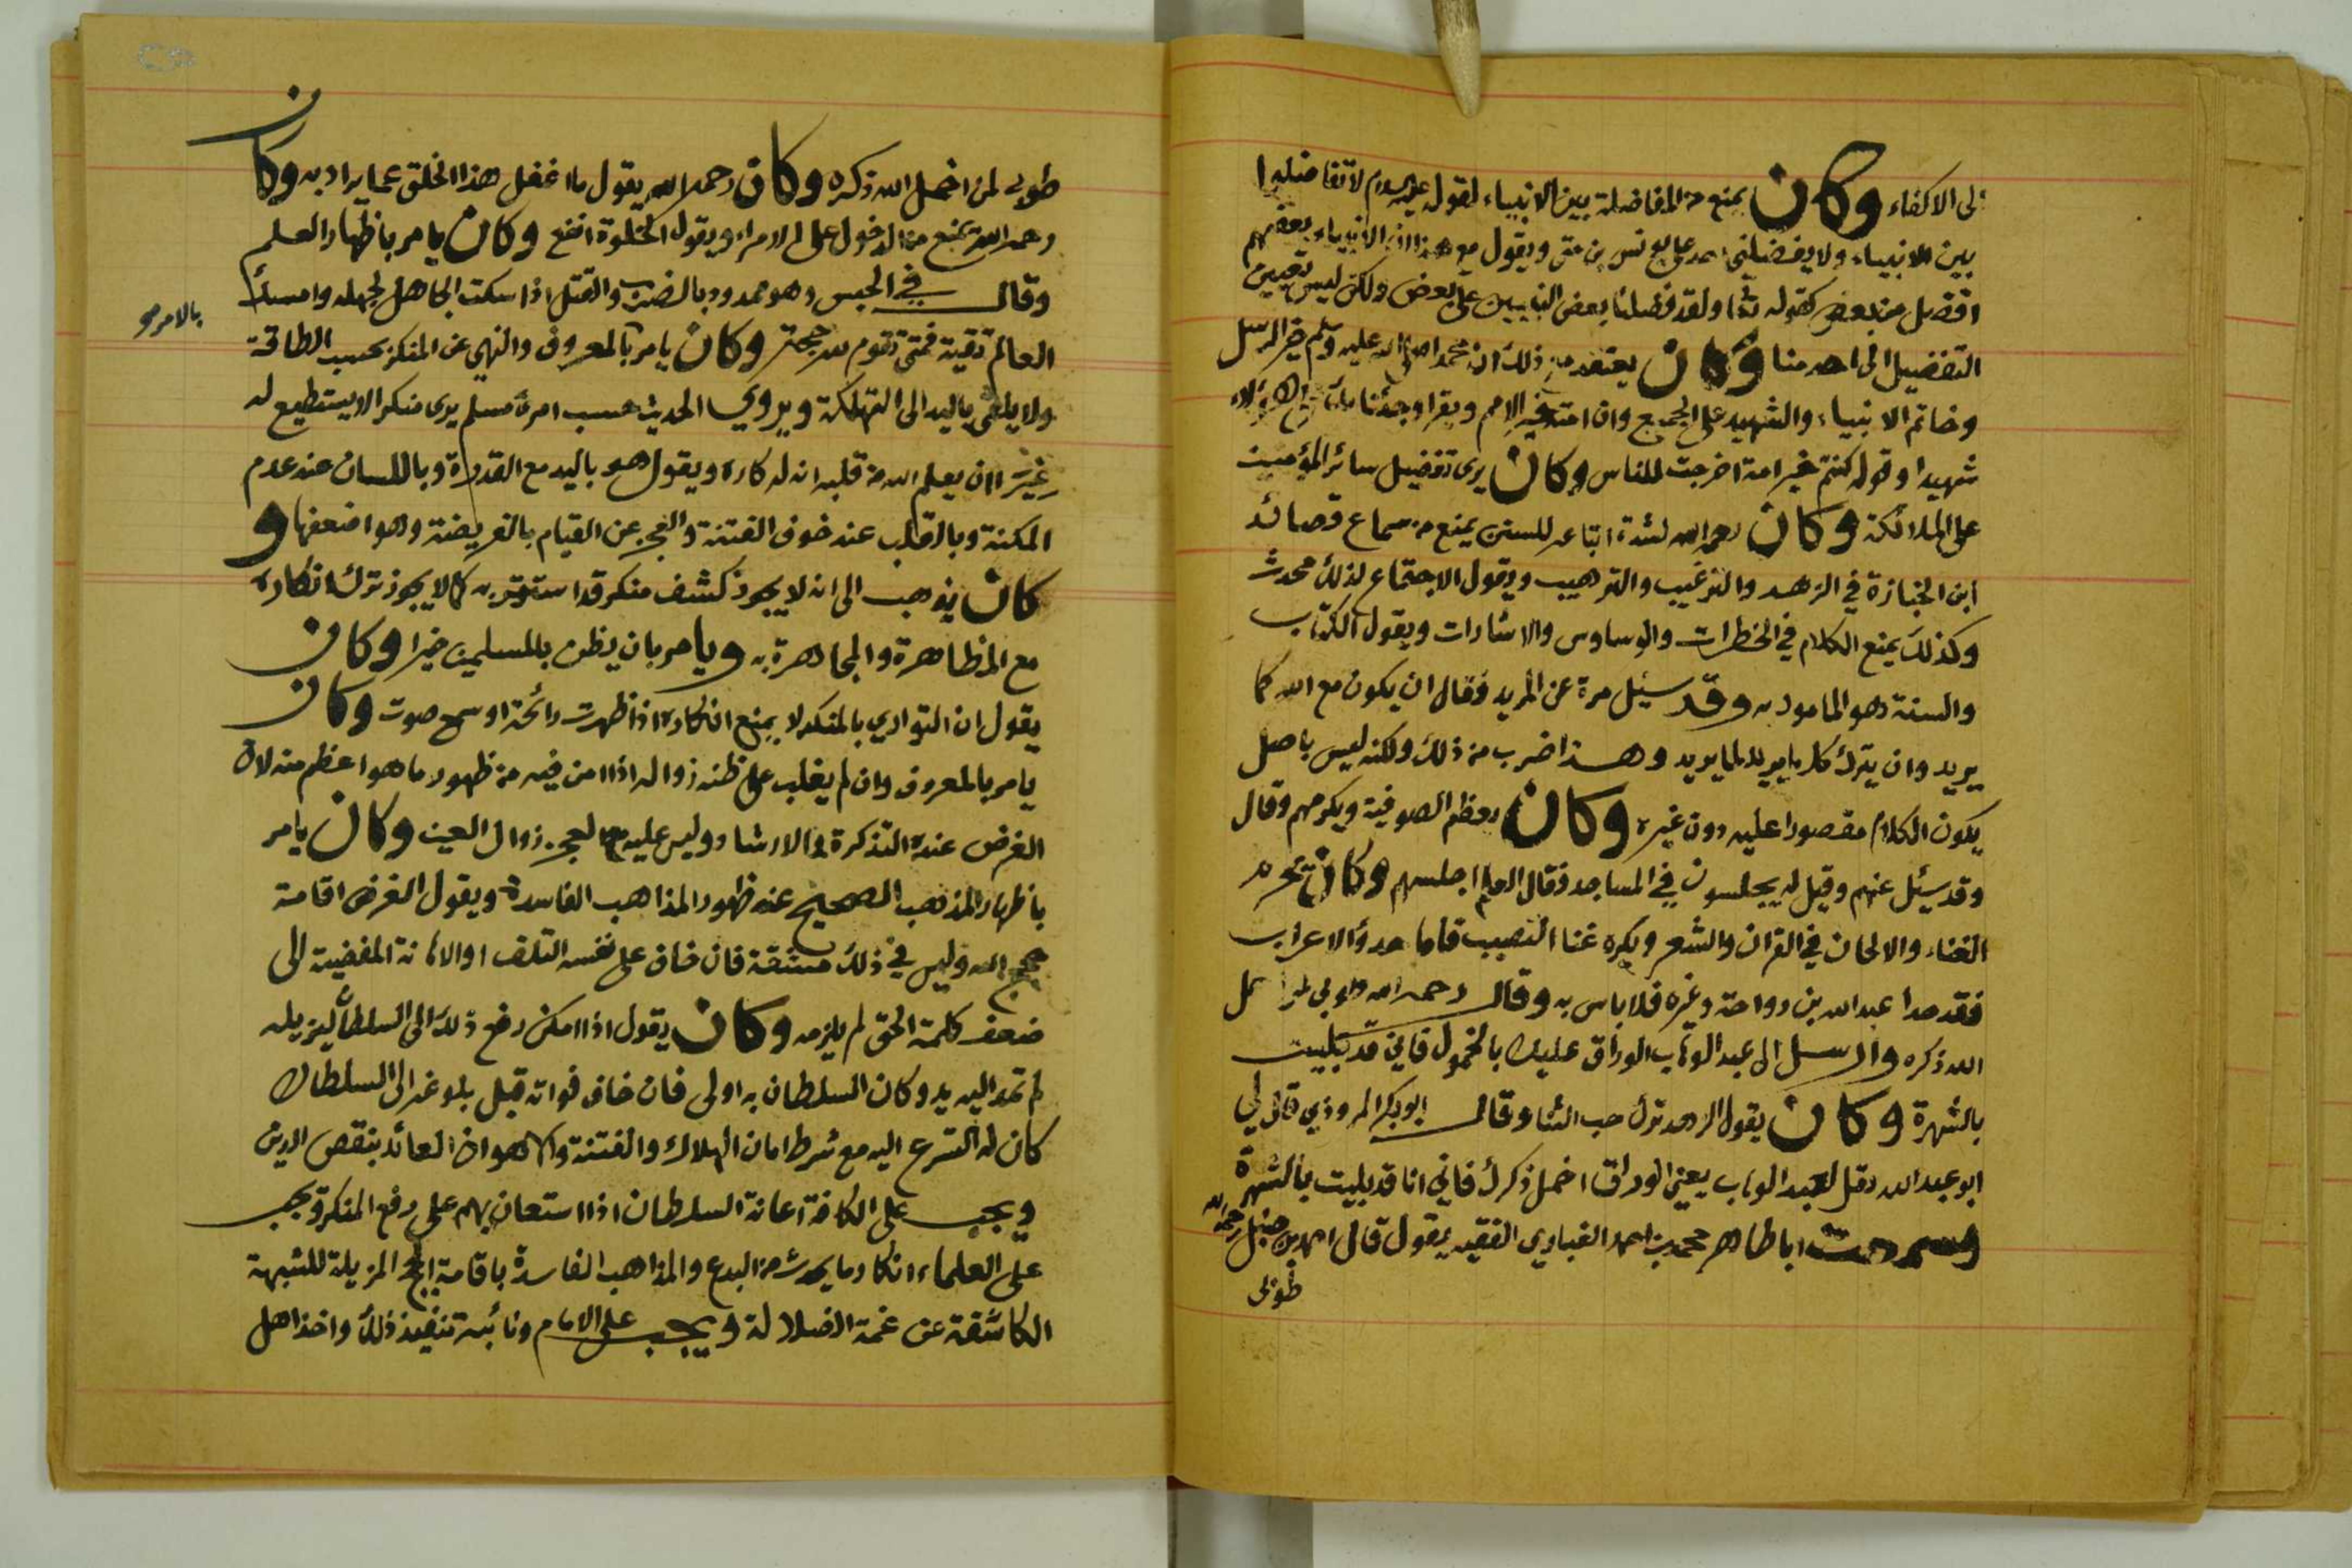 الى الاكفاء وكان يمنع من المفاضلة بين الانبياء لقوله عليه السلام لا تفاضلوا
بين الانبياء ولا يفضلني احد على يونس بن متى ويقول مع هذا ان الانبياء بعضهم
افضل من بعض كقوله تعا ولقد فضلنا بعض النبيين على بعض ولكن ليس تعيين
التفضيل الى احد منا وكان يعتقد من ذلك ان محمدا صلى الله عليه وسلم خير الرسل
وخاتم الانبياء والشهيد على الجميع وان امته خير الامم ويقرا وجئنا بك على هؤلاء
شهيدا وقوله كنتم خير امة اخرجت للناس وكان يرى تفضيل سائر المؤمنين
على الملائكة وكان رحمه الله لشدة اتباعه للسنن يمنع من سماع قصائد
ابن الخبازة في الزهد والترغيب والترهيب ويقول الاجتماع لذلك محدث
وكذلك يمنع الكلام في الخطرات والوساوس والاشارات ويقول الكتاب
والسنة وهو المامور به وقد سئل مرة عن المريد فقال ان يكون مع الله كما
يريد وان يترك كل ما يريد لما يريد وهذا ضرب من ذلك ولكنه ليس باصل
يكون الكلام مقصورا عليه دون غيره وكان يعظم الصوفية ويكرمهم وقال
وقد سئل عنهم وقيل له يجلسون في المساجد فقال العلم اجلسهم وكان يكره
الغناء والالحان في القران والشعر ويكره غنا النصيب فاما حدو الاعراب
فقد حدا عبد الله بن رواحة وغيره فلا باس به وقال رحمه الله طوبى لمن اخمل
الله ذكره وارسل الى عبد الوهاب الوراق عليك بالخمول فاني قد بليت
بالشهرة وكان يقول الزهد ترك حب الثنا وقال ابو بكر المروذي قال لي
ابو عبد الله قل لعبد الوهاب يعني الوراق اخمل ذكرك فاني انا قد بليت بالشهرة
وسمعت ابا طاهر محمد بن احمد الغباري الفقيه يقول قال احمد بن حنبل رحمه الله
طوبى
طوبى لمن اخمل الله ذكره وكان رحمه الله يقول ما اغفل هذا الخلق عما يراد به وكان
رحمه الله يمنع من الدخول على الامراء ويقول الخلوة انفع وكان يامر باظهار العلم
وقال في الحبس وهو ممدود بالضرب والقتل اذا سكت الجاهل لجهله وامسك
العالم تقية فمتى تقوم لله حجة وكان يامر بالمعروف والنهي عن المنكر بحسب الطاقة
بالامر
ولا يلقي باليد الى التهلكة ويروي الحديث حسب امرئ مسلم يرى منكرا لا يستطيع له
غير ان يعلم الله من قلبه انه له كاره ويقول هو باليد مع القدرة وباللسان عند عدم
المكنة وبالقلب عند خوف الفتنة والعجز عن القيام بالفريضة وهو اضعفها و
كان يذهب الى انه لا يجوز كشف منكر قد استوتر به كما لا يجوز ترك انكاره
مع المظاهرة والمجاهرة به ويامر بان يظن بالمسلمين خيرا وكان
يقول ان التواري بالمنكر لا يمنع انكاره اذا ظهرت رائحة او سمع صوت وكان
يامر بالمعروف وان لم يغلب على ظنه زواله اذا امن فيه من ظهور ما هو اعظم منه لان
الغرض عنده التذكرة والارشاد وليس عليه مع العجز زوال العين وكان يامر
باظهار المذهب الصحيح عند ظهور المذاهب الفاسدة ويقول الغرض اقامة
حجج الله وليس في ذلك مشقة فان خاف على نفسه التلف او الاهانة المفضية الى
ضعف كلمة الحق لم يلزمه وكان يقول اذا امكن رفع ذلك الى السلطان ليزيله
لم تمد اليه يد وكان السلطان به اولى فان خاف فواته قبل بلوغه الى السلطان
كان له التسرع اليه مع شرط امان الهلاك والفتنة والاهوان العائد بنقص الدين
ويجب على الكافة اعانة السلطان اذا استعان بهم على رفع المنكر ويجب
على العلماء انكار ما يحدث من البدع والمذاهب الفاسدة باقامة الحجج المزيلة للشبهة
الكاشفة عن غمة الضلالة ويجب على الامام ونائبه تنفيذ ذلك واخذ اهل